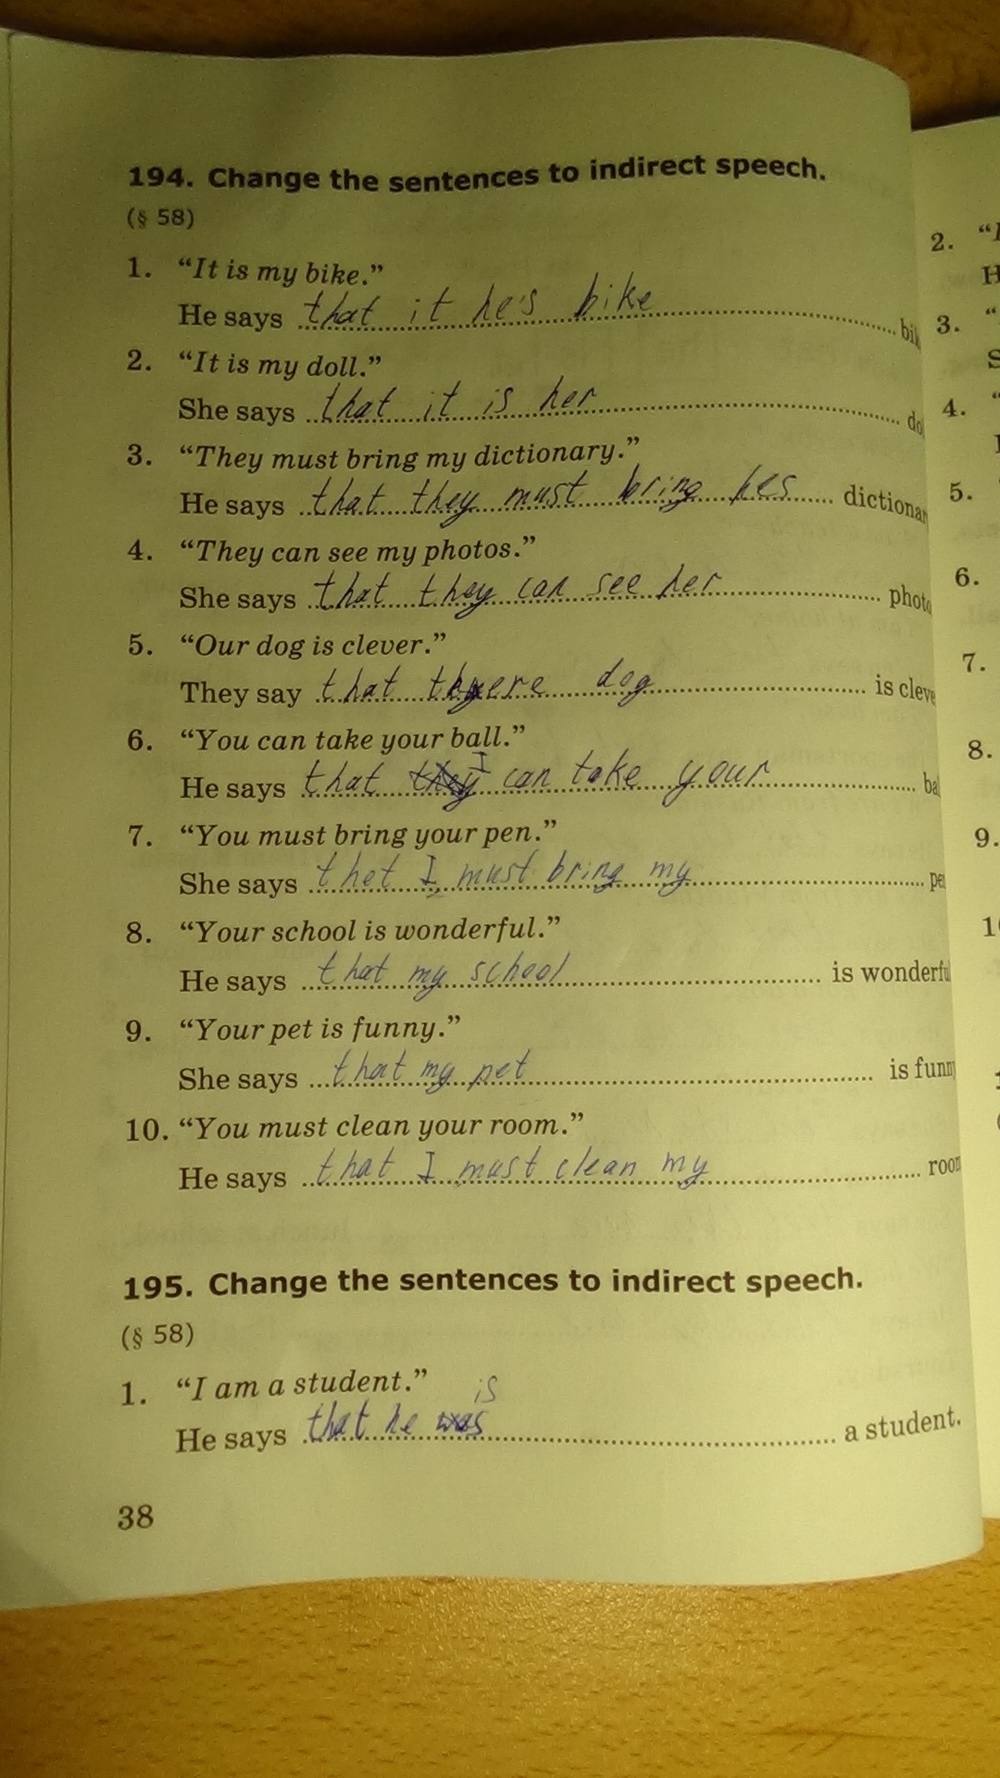 194. Change the sentences to indirect speech.
(§ 58)
1. “It is my bike.”
He says that it he's bike ........ bik
2. “It is my doll.”
She says that it is her ........ do
3. “They must bring my dictionary.”
He says that they must bring hes ........ dictionar
4. “They can see my photos.”
She says that they can see her ........ photo
5. “Our dog is clever.”
They say that there dog ........ is cleve
6. “You can take your ball.”
He says that they I can take your ........ ba
7. “You must bring your pen.”
She says thet I must bring my ........ pe
8. “Your school is wonderful.”
He says that my school ........ is wonderfu
9. “Your pet is funny.”
She says that my pet ........ is funn
10. “You must clean your room.”
He says that I must clean my ........ room
195. Change the sentences to indirect speech.
(§ 58)
1. “I am a student.”
is
He says that he was ........ a student.
38
2. “I
H
3. “
S
4. “
5.
6.
7.
8.
9.